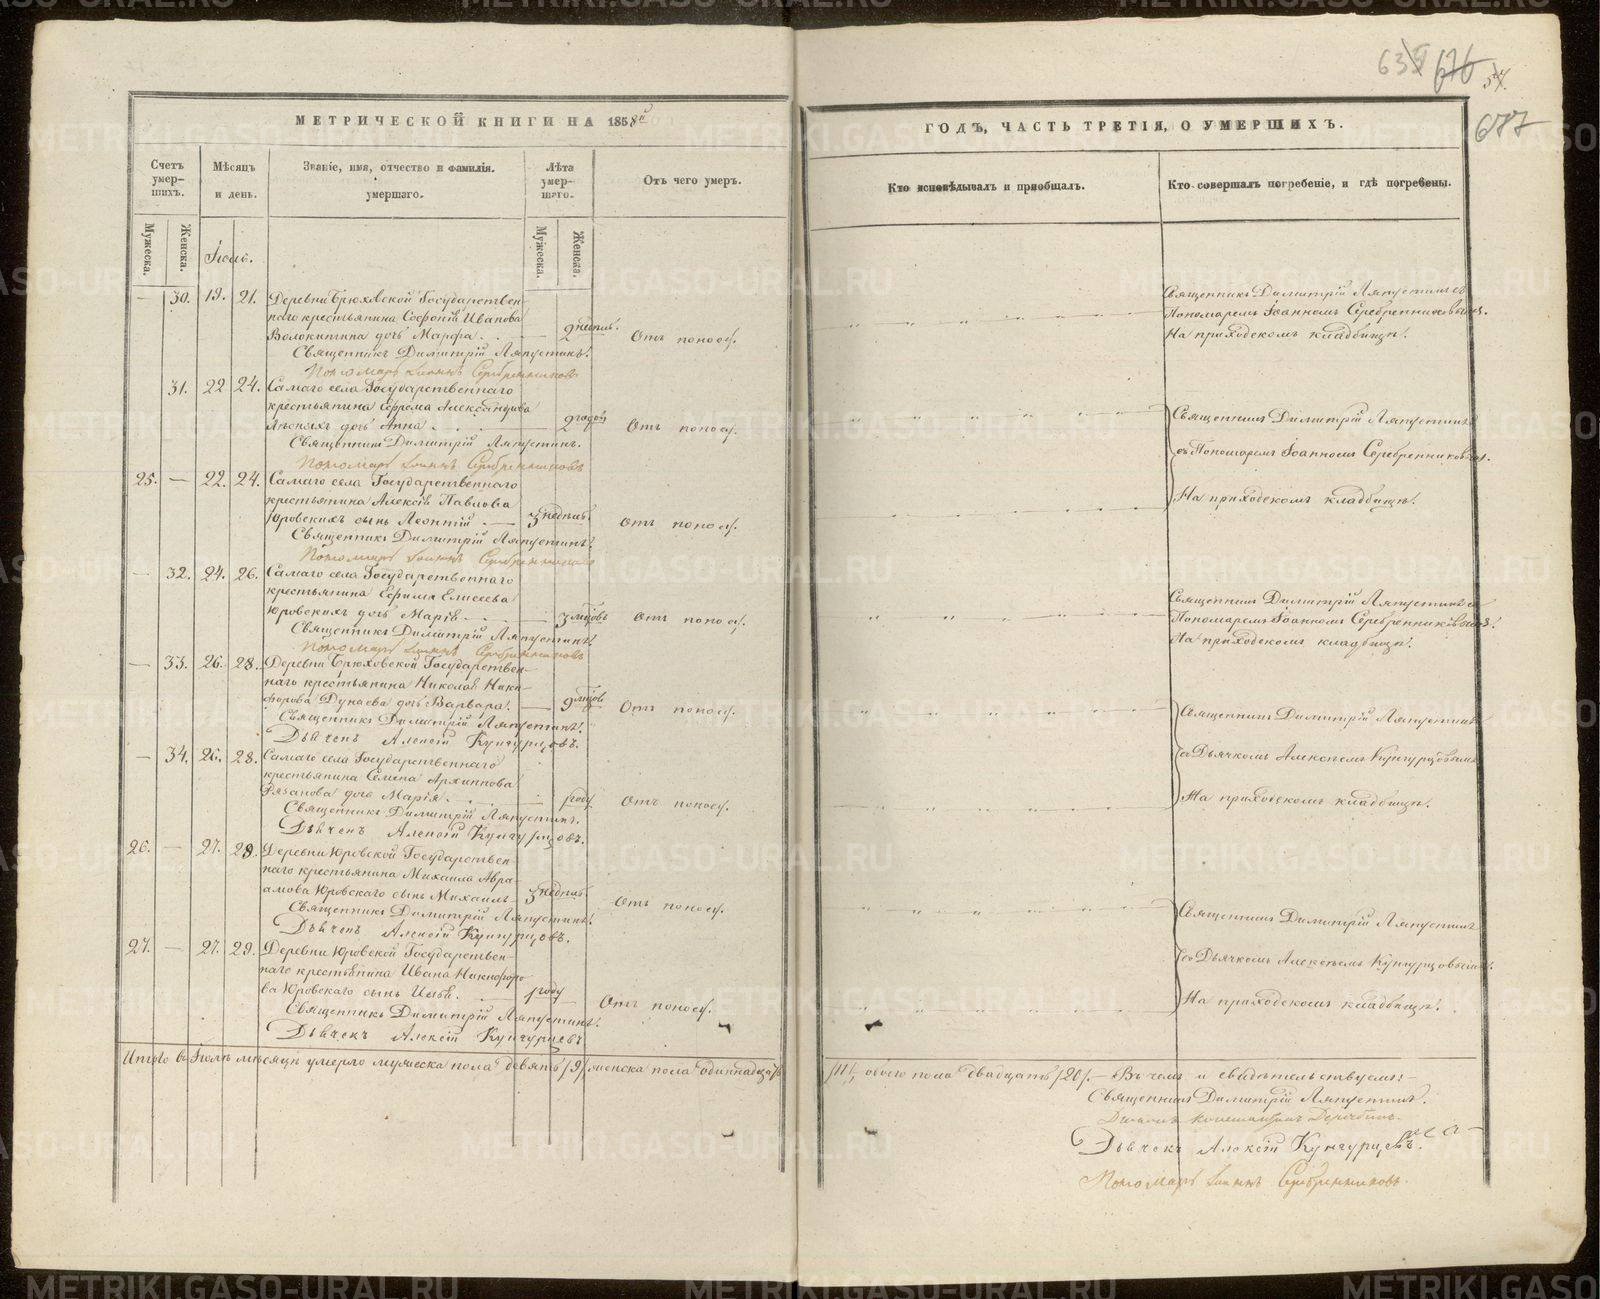 МЕТРИЧЕСКОЙ КНИГИ НА 1858й
Счетъ умер-шихъ.
Мужеска.
Женска.
Мѣсяцъ и день.
Званіе, имя, отчество и фамилія умершаго.
Лѣта умер-шаго.
Мужеска.
Женска.
Отъ чего умеръ.
Іюль.
30. 19. 21. Деревни Брюховской Государствен-
наго крестьянина Софонія Иванова
Волокитина дочь Марфа. 2 недѣль. Отъ поносу.
Священникъ Димитрій Ляпустинъ.
Пономарь Іоаннъ Серебренниковъ
31. 22 24. Самаго села Государственнаго
крестьянина Ефрема Александрова
дочь Анна 2 годовъ Отъ поносу.
Священникъ Димитрій Ляпустинъ.
Пономарь Іоаннъ Серебренниковъ
25. — 22. 24. Самаго села Государственнаго
крестьянина Алексія Павлова
Юровскихъ сынъ Леонтій 3 недѣль Отъ поносу.
Священникъ Димитрій Ляпустинъ.
Пономарь Іоаннъ Серебренниковъ
— 32. 24. 26. Самаго села Государственнаго
крестьянина Ефима Елисеева
Юровскихъ дочь Марія Отъ поносу.
Священникъ Димитрій Ляпустинъ.
Пономарь Іоаннъ Серебренниковъ
— 33. 26. 28. Деревни Брюховской Государствен-
наго крестьянина Николая Ники-
форова Дунаева дочь Варвара. Отъ поносу.
Священникъ Димитрій Ляпустинъ.
Дьячекъ Алексій Кунгурцовъ.
— 34. 26. 28. Самаго села Государственнаго
крестьянина Семена Архиппова
Рязанова дочь Марія. 1 году Отъ поносу.
Священникъ Димитрій Ляпустинъ.
Дьячекъ Алексій Кунгурцовъ.
26. — 27. 29. Деревни Юровской Государствен-
наго крестьянина Михаила Авра-
амова Юровскаго сынъ Михаилъ 3 недѣль Отъ поносу.
Священникъ Димитрій Ляпустинъ.
Дьячекъ Алексій Кунгурцовъ.
27. — 27. 29. Деревни Юровской Государствен-
наго крестьянина Ивана Никифоро-
ва Юровскаго сынъ 1 году Отъ поносу.
Священникъ Димитрій Ляпустинъ.
Дьячекъ Алексій Кунгурцевъ
Итого въ Іюлѣ мѣсяцѣ умерло мужеска пола девять /9/ женска пола одиннадцать
676
687
ГОДЪ, ЧАСТЬ ТРЕТІЯ, О УМЕРШИХЪ.
Кто исповѣдывалъ и пріобщалъ.
Кто совершалъ погребеніе, и гдѣ погребены.
Священникъ Димитрій Ляпустинъ съ
Пономаремъ Іоанномъ Серебренниковымъ.
На приходскомъ кладбищѣ.
Священникъ Димитрій Ляпустинъ
съ Пономаремъ Іоанномъ Серебренниковымъ.
На приходскомъ кладбищѣ.
Священникъ Димитрій Ляпустинъ съ
Пономаремъ Іоанномъ Серебренниковымъ.
На приходскомъ кладбищѣ.
Священникъ Димитрій Ляпустинъ
съ Дьячкомъ Алексѣемъ Кунгурцовымъ
На приходскомъ кладбищѣ.
Священникъ Димитрій Ляпустинъ
съ Дьячкомъ Алексѣемъ Кунгурцовымъ.
На приходскомъ кладбищѣ.
/11/, обоего пола двадцать /20/. — Въ чемъ и свидѣтельствуемъ:
Священникъ Димитрій Ляпустинъ.
Дьячекъ Алексій Кунгурцевъ.
Пономарь Іоаннъ Серебренниковъ.
METRIKI.GASO-URAL.RU